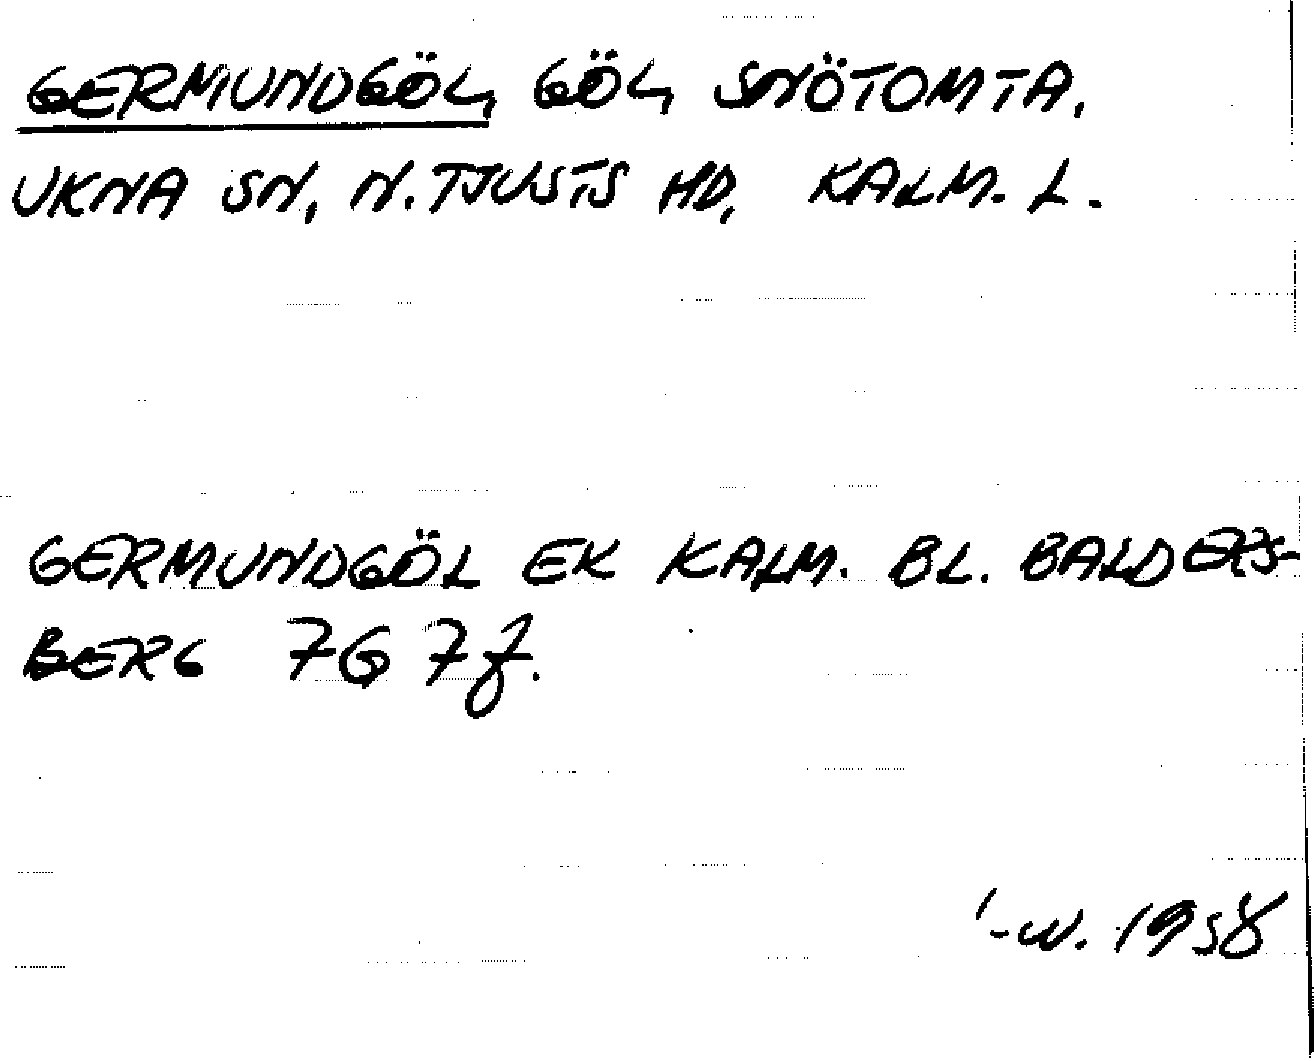 GERMUNDGÖL, GÖL, SNÖTOMTA,
UKNA SN, N. TJUSTS HD, KALM. L.
GERMUNDGÖL EK KALM. BL. BALDERS-
BERG 7G 7f.
-w. 1958